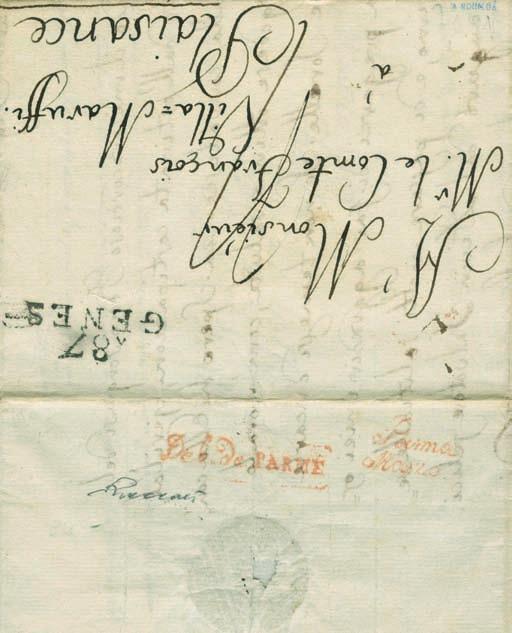 A Monsieur
Mr. le Comte François
Villa=Maruffi.
à
Plaisance
87
GENES
Deb. de PARME
Parma